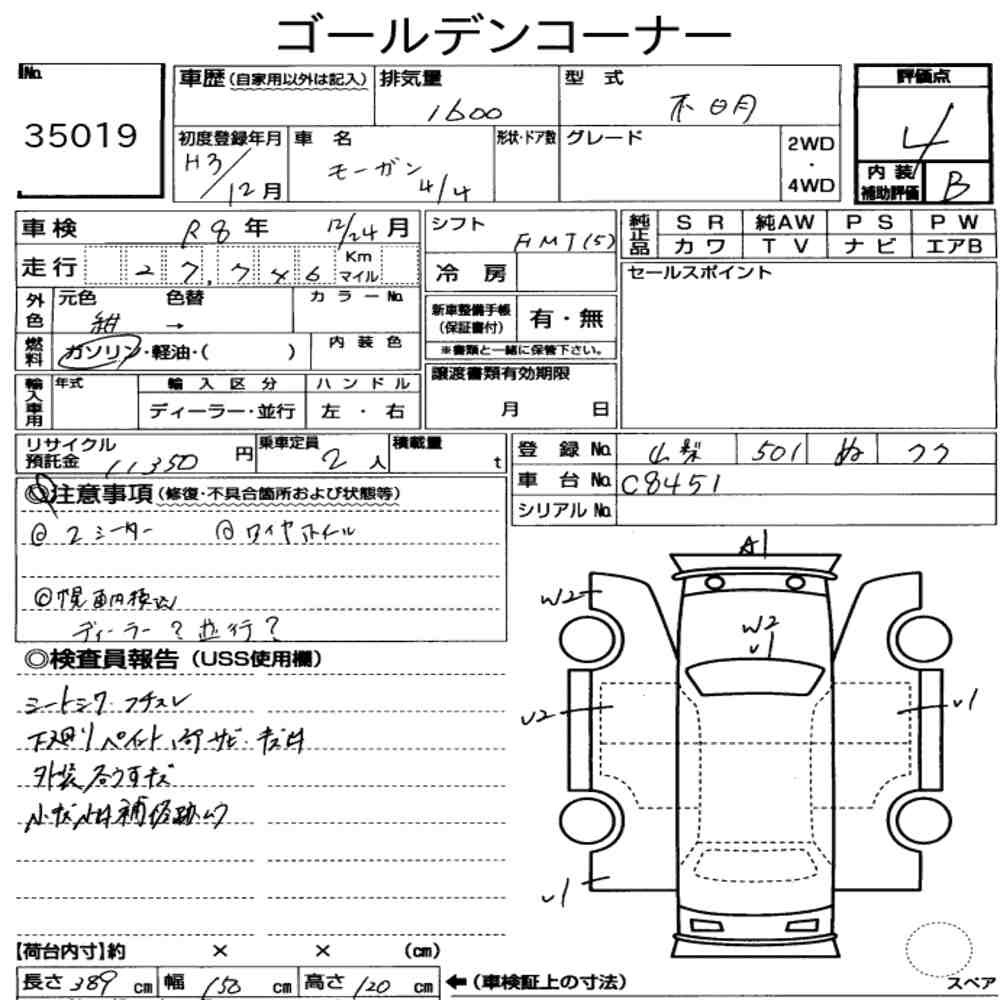 ゴールデンコーナー
No. 35019
車歴 (自家用以外は記入)
排気量 1600
型式 不明
評価点 4
内装補助評価 B
初度登録年月 H3/12月
車名 モーガン 4/4
形状・ドア数
グレード
2WD・4WD
車検 R8年 12/24月
走行 27,746 Km マイル
シフト FMT(5)
冷房
純正品 SR 純AW PS PW
カワ TV ナビ エアB
セールスポイント
外色 元色 紺 → 色替
カラーNo.
燃料 ガソリン・軽油・( )
内装色
新車整備手帳(保証書付) 有・無
※書類と一緒に保管下さい。
輸入車用 年式
輸入区分 ディーラー・並行
ハンドル 左・右
譲渡書類有効期限
月 日
リサイクル預託金 11350円
乗車定員 2人
積載量 t
登録No. 山梨 501 ぬ
車台No. C8451
シリアルNo.
◎注意事項 (修復・不具合箇所および状態等)
◎2シーター ◎ワイヤホイル
◎幌車内積込
ディーラー?並行?
◎検査員報告 (USS使用欄)
シートシワ・フチスレ
下廻りペイント 部サビ・キズ
外装 うすキズ
小キズ 補修跡
A1
W2
W2
U1
U2
U1
U1
【荷台内寸】約 × × (cm)
長さ 389 cm 幅 150 cm 高さ 120 cm
←(車検証上の寸法)
スペア